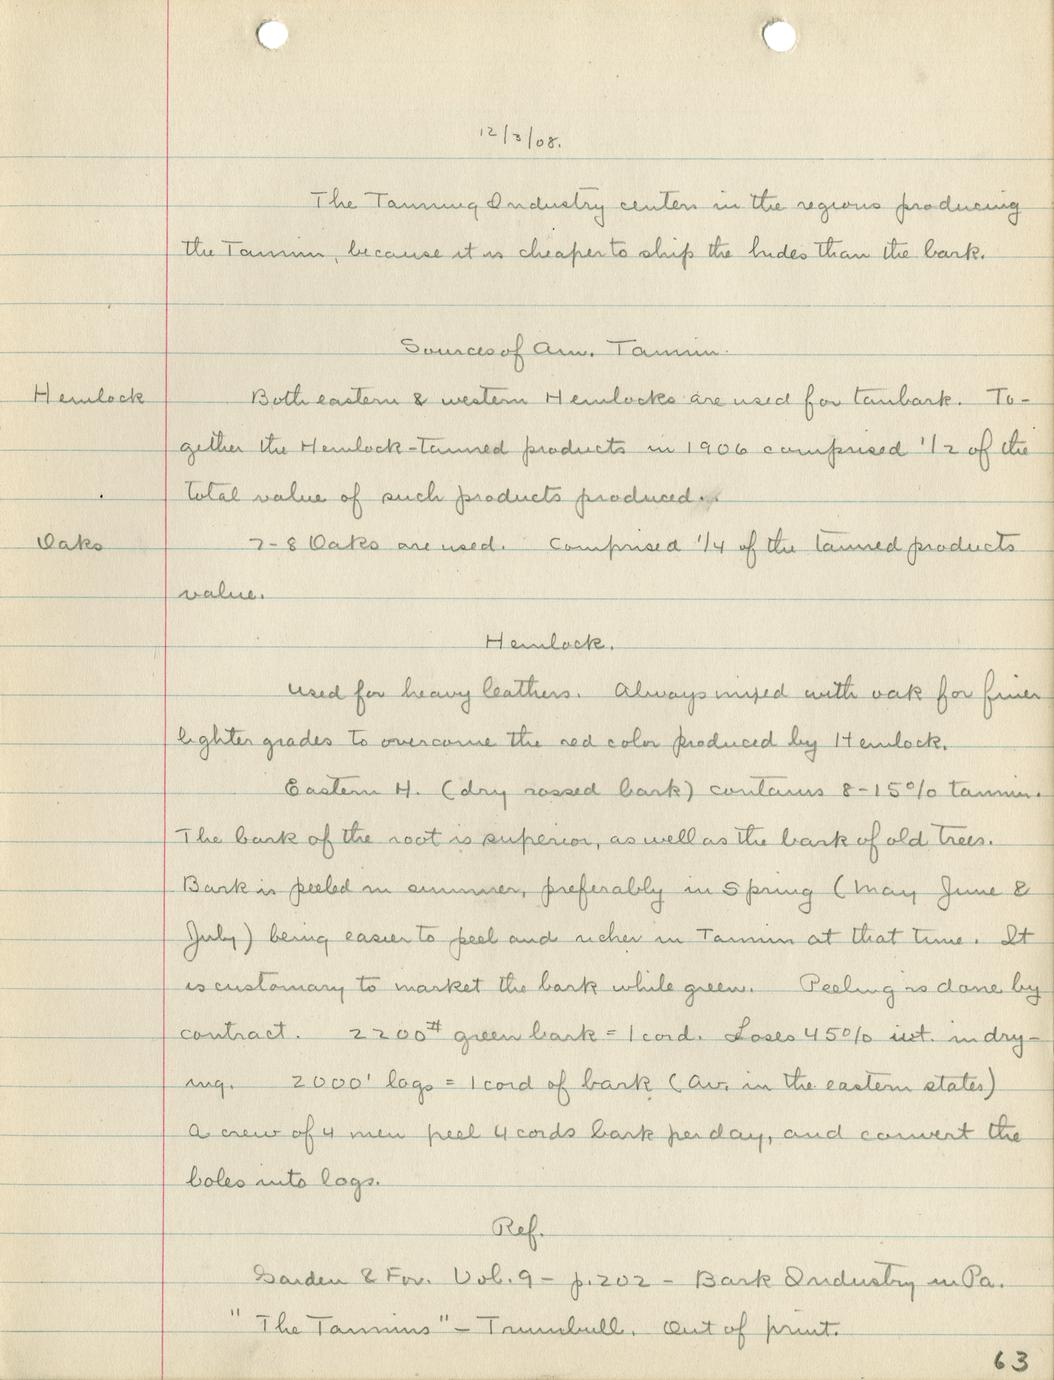 12/3/08.
The Tanning Industry centers in the regions producing
the Tannin, because it is cheaper to ship the hides than the bark.
Sources of Am. Tannin.
Hemlock Both eastern & western Hemlocks are used for tanbark. To-
gether the Hemlock-tanned products in 1906 comprised 1/2 of the
total value of such products produced.
Oaks 7-8 Oaks are used. Comprised 1/4 of the tanned products
value.
Hemlock.
Used for heavy leathers. Always mixed with oak for finer
lighter grades to overcome the red color produced by Hemlock.
Eastern H. (dry rossed bark) contains 8-15% tannin.
The bark of the root is superior, as well as the bark of old trees.
Bark is peeled in summer, preferably in Spring (May June &
July) being easier to peel and richer in Tannin at that time. It
is customary to market the bark while green. Peeling is done by
contract. 2200# green bark = 1 cord. Loses 45% wt. in dry-
ing. 2000' logs = 1 cord of bark (Av. in the eastern states)
A crew of 4 men peel 4 cords bark per day, and convert the
boles into logs.
Ref.
Garden & For. Vol. 9 - p. 202 - Bark Industry in Pa.
"The Tannins" - Trumbull. Out of print.
63